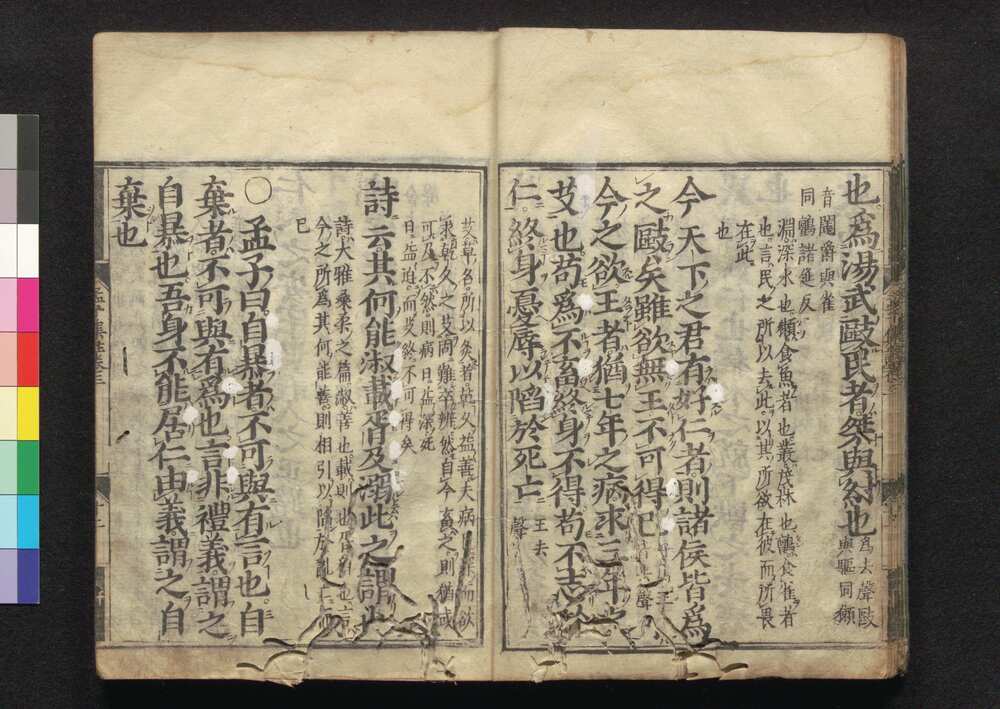 也爲湯武毆民者桀與紂也
爲去聲毆
與驅同獺
音闥爵與雀
同鸇諸延反
淵深水也獺食魚者也叢茂林也鸇食雀者
也言民之所以去此以其所欲在彼而所畏
在此
也
今天下之君有好仁者則諸侯皆爲
之毆矣雖欲無王不可得已
今之欲王者猶七年之病求三年之
艾也苟爲不畜終身不得苟不志於
仁終身憂辱以陷於死亡
王去
聲
艾草名所以灸者乾久益善夫病而欲
求乾久之艾固難卒辨然自今畜之則猶或
可及不然則病日益深死
日益迫而艾終不可得矣
詩云其何能淑載胥及溺此之謂也
詩大雅桑柔之篇淑善也載則也胥相也言
今之所爲其何能善則相引以陷於亂亡而
已
○孟子曰自暴者不可與有言也自
棄者不可與有爲也言非禮義謂之
自暴也吾身不能居仁由義謂之自
棄也